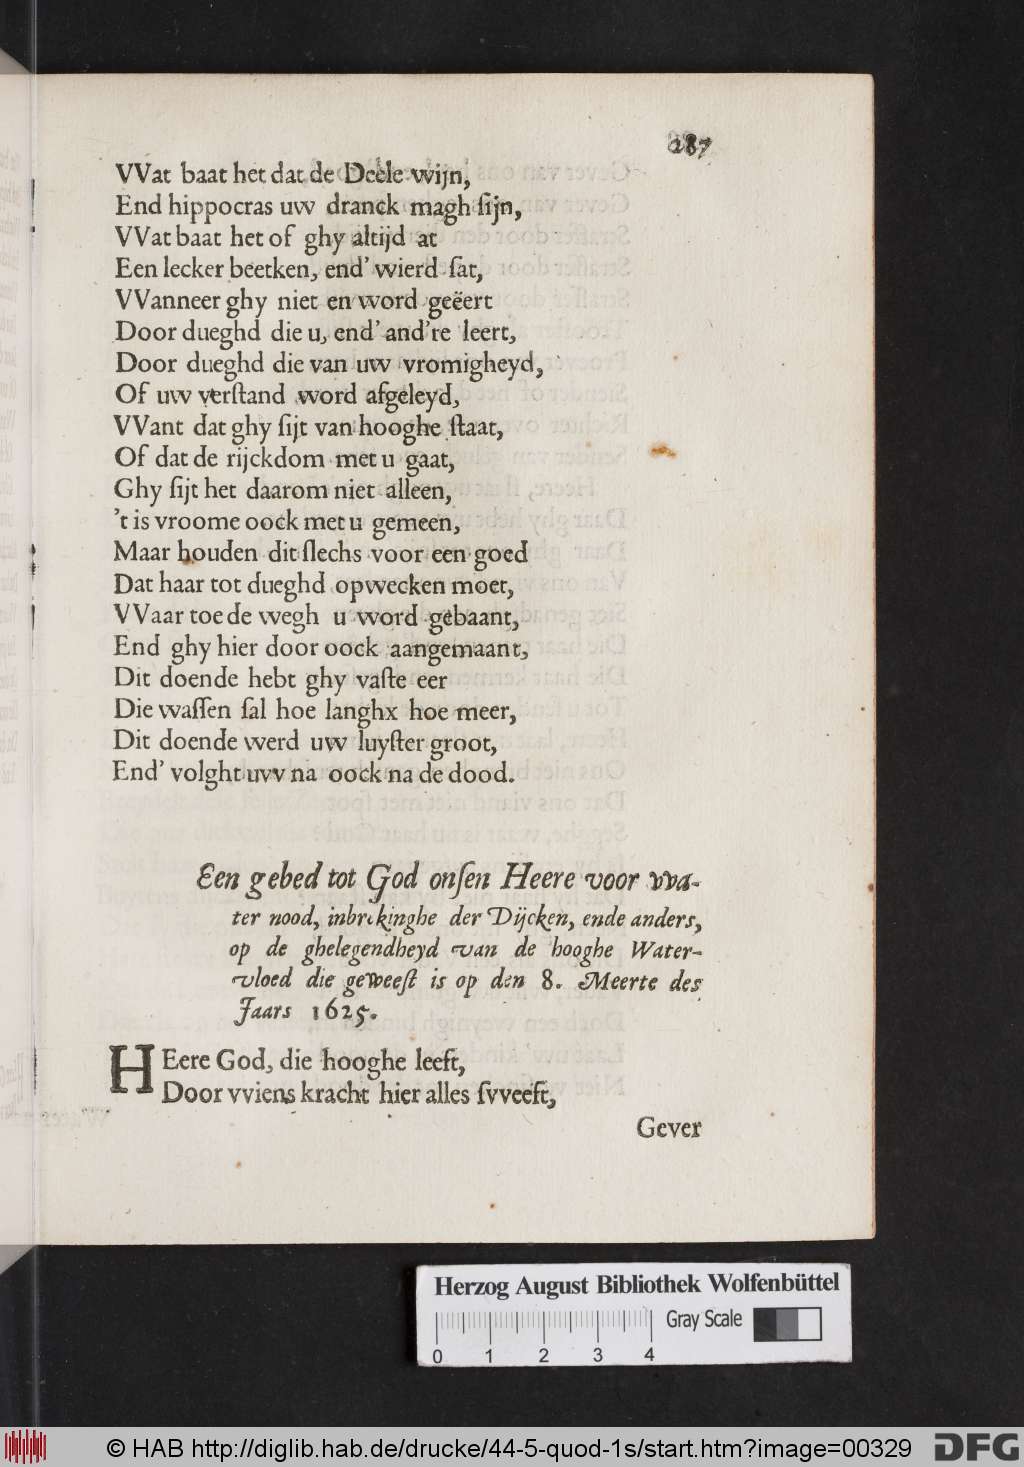 287
VVat baat het dat de Deele wijn,
End hippocras uw dranck magh ſijn,
VVat baat het of ghy altijd at
Een lecker beetken, end' wierd ſat,
VVanneer ghy niet en word geëert
Door dueghd die u, end' and're leert,
Door dueghd die van uw vromigheyd,
Of uw verſtand word afgeleyd,
VVant dat ghy ſijt van hooghe ſtaat,
Of dat de rijckdom met u gaat,
Ghy ſijt het daarom niet alleen,
't is vroome oock met u gemeen,
Maar houden dit ſlechs voor een goed
Dat haar tot dueghd opwecken moet,
VVaar toe de wegh u word gebaant,
End ghy hier door oock aangemaant,
Dit doende hebt ghy vaſte eer
Die waſſen ſal hoe langhx hoe meer,
Dit doende werd uw luyſter groot,
End' volght uvv na oock na de dood.
Een gebed tot God onſen Heere voor vva-
ter nood, inbrekinghe der Dijcken, ende anders,
op de ghelegendheyd van de hooghe Water-
vloed die geweeſt is op den 8. Meerte des
Jaars 1625.
HEere God, die hooghe leeft,
Door vviens kracht hier alles ſvveeft,
Gever
Herzog August Bibliothek Wolfenbüttel
Gray Scale
0 1 2 3 4
© HAB http://diglib.hab.de/drucke/44-5-quod-1s/start.htm?image=00329
DFG